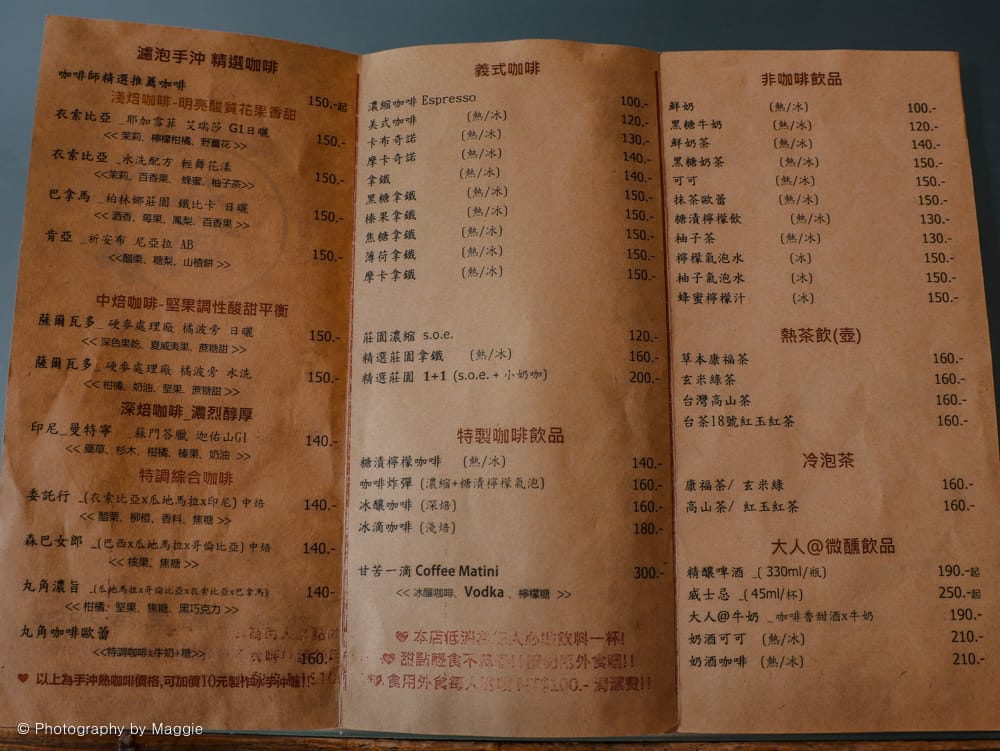 濾泡手沖 精選咖啡
咖啡師精選推薦咖啡 150.-起
淺焙咖啡-明亮酸質花果香甜
衣索比亞 _耶加雪菲 艾瑞莎 G1日曬 150.-
<< 茉莉、檸檬柑橘、野薑花 >>
衣索比亞 _水洗配方 輕舞花漾 150.-
<<茉莉、百香果、 蜂蜜、柚子茶>>
巴拿馬 _柏林娜莊園 鐵比卡 日曬 150.-
<< 酒香、莓果、鳳梨、百香果 >>
肯亞 _祈安布 尼亞拉 AB 150.-
<<醋栗、糖梨、山楂餅 >>
中焙咖啡-堅果調性酸甜平衡
薩爾瓦多_ 硬麥處理廠 橘波旁 日曬 150.-
<< 深色果乾、夏威夷果、蔗糖甜 >>
薩爾瓦多_ 硬麥處理廠 橘波旁 水洗 150.-
<< 柑橘、奶油、堅果、蔗糖甜 >>
深焙咖啡_濃烈醇厚
印尼_曼特寧 _蘇門答臘 迦佑山G1 140.-
<< 藥草、杉木、柑橘、榛果、奶油 >>
特調綜合咖啡
委託行 _(衣索比亞x瓜地馬拉x印尼) 中焙 140.-
<< 醋栗、柳橙、香料、焦糖 >>
森巴女郎 _(巴西x瓜地馬拉x哥倫比亞) 中焙 140.-
<< 榛果、焦糖 >>
丸角濃旨 _(瓜地馬拉x哥倫比亞x衣索比亞x巴拿馬) 140-
<< 柑橘、堅果、焦糖、黑巧克力 >>
丸角咖啡歐蕾
<<特調咖啡x牛奶+糖>> 160.-
♥ 以上為手沖熱咖啡價格,可加價10元製作冰手沖
義式咖啡
濃縮咖啡 Espresso 100.-
美式咖啡 (熱/冰) 120.-
卡布奇諾 (熱/冰) 130.-
摩卡奇諾 (熱/冰) 140.-
拿鐵 (熱/冰) 140.-
黑糖拿鐵 (熱/冰) 150.-
榛果拿鐵 (熱/冰) 150.-
焦糖拿鐵 (熱/冰) 150.-
薄荷拿鐵 (熱/冰) 150.-
摩卡拿鐵 (熱/冰) 150.-
莊園濃縮 s.o.e. 120.-
精選莊園拿鐵 (熱/冰) 160.-
精選莊園 1+1 (s.o.e. + 小奶咖) 200.-
特製咖啡飲品
糖漬檸檬咖啡 (熱/冰) 140.-
咖啡炸彈 (濃縮+糖漬檸檬氣泡) 160.-
冰釀咖啡 (深焙) 160.-
冰滴咖啡 (淺焙) 180.-
甘苦一滴 Coffee Matini 300.-
<< 冰釀咖啡、Vodka 、檸檬糖 >>
♥ 本店低消 人 飲料一杯!
♥ 甜點輕食不 用外食喔!!
♥ 食用外食每人 NT$100.- 清潔費!!
非咖啡飲品
鮮奶 (熱/冰) 100.-
黑糖牛奶 (熱/冰) 120.-
鮮奶茶 (熱/冰) 140.-
黑糖奶茶 (熱/冰) 150.-
可可 (熱/冰) 150.-
抹茶歐蕾 (熱/冰) 150.-
糖漬檸檬飲 (熱/冰) 130.-
柚子茶 (熱/冰) 130.-
檸檬氣泡水 (冰) 150.-
柚子氣泡水 (冰) 150.-
蜂蜜檸檬汁 (冰) 150.-
熱茶飲(壺)
草本康福茶 160.-
玄米綠茶 160.-
台灣高山茶 160.-
台茶18號紅玉紅茶 160.-
冷泡茶
康福茶/ 玄米綠 160.-
高山茶/ 紅玉紅茶 160.-
大人@微醺飲品
精釀啤酒 _( 330ml/瓶) 190.-起
威士忌 _(45ml/杯) 250.-起
大人@牛奶 _咖啡香甜酒x牛奶 190.-
奶酒可可 (熱/冰) 210.-
奶酒咖啡 (熱/冰) 210.-
© Photography by Maggie